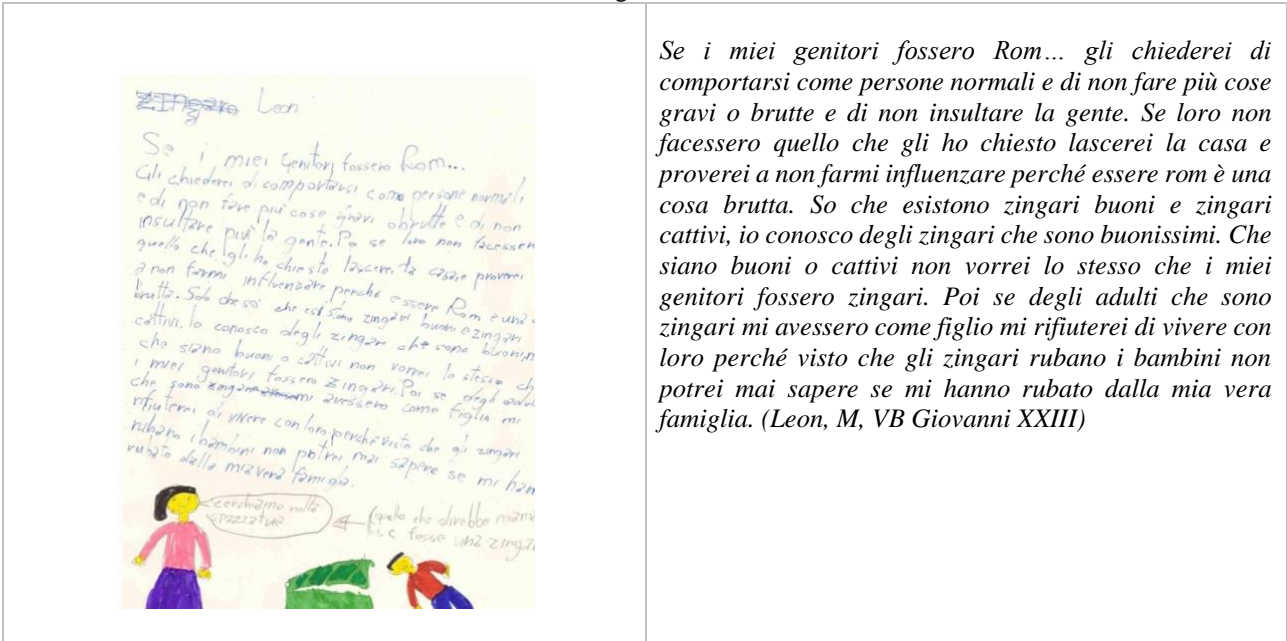 Zingare Leon
Se i miei genitori fossero Rom...
Gli chiederei di comportarsi come persone normali
e di non fare più cose gravi o brutte e di non
insultare più la gente. Po se loro non facessero
quello che gli ho chiesto lascerei la casa e proverei
a non farmi influenzare perché essere Rom è una
brutta. che esistono zingari buoni e zingari
cattivi. Io conosco degli zingari che sono buoni
che siano buoni o cattivi non vorrei lo stesso ch
i miei genitori fossero Zingari. Poi se degli adul
che sono zingari mi avessero come figlio mi
rifiuterei di vivere con loro perché visto che gli zingari
rubano i bambini non potrei mai sapere se mi han
rubato dalla mia vera famiglia.
cerchiamo nella
spazzatura
(quello che direbbe mamma
se fosse una zingar
Se i miei genitori fossero Rom… gli chiederei di
comportarsi come persone normali e di non fare più cose
gravi o brutte e di non insultare la gente. Se loro non
facessero quello che gli ho chiesto lascerei la casa e
proverei a non farmi influenzare perché essere rom è una
cosa brutta. So che esistono zingari buoni e zingari
cattivi, io conosco degli zingari che sono buonissimi. Che
siano buoni o cattivi non vorrei lo stesso che i miei
genitori fossero zingari. Poi se degli adulti che sono
zingari mi avessero come figlio mi rifiuterei di vivere con
loro perché visto che gli zingari rubano i bambini non
potrei mai sapere se mi hanno rubato dalla mia vera
famiglia. (Leon, M, VB Giovanni XXIII)